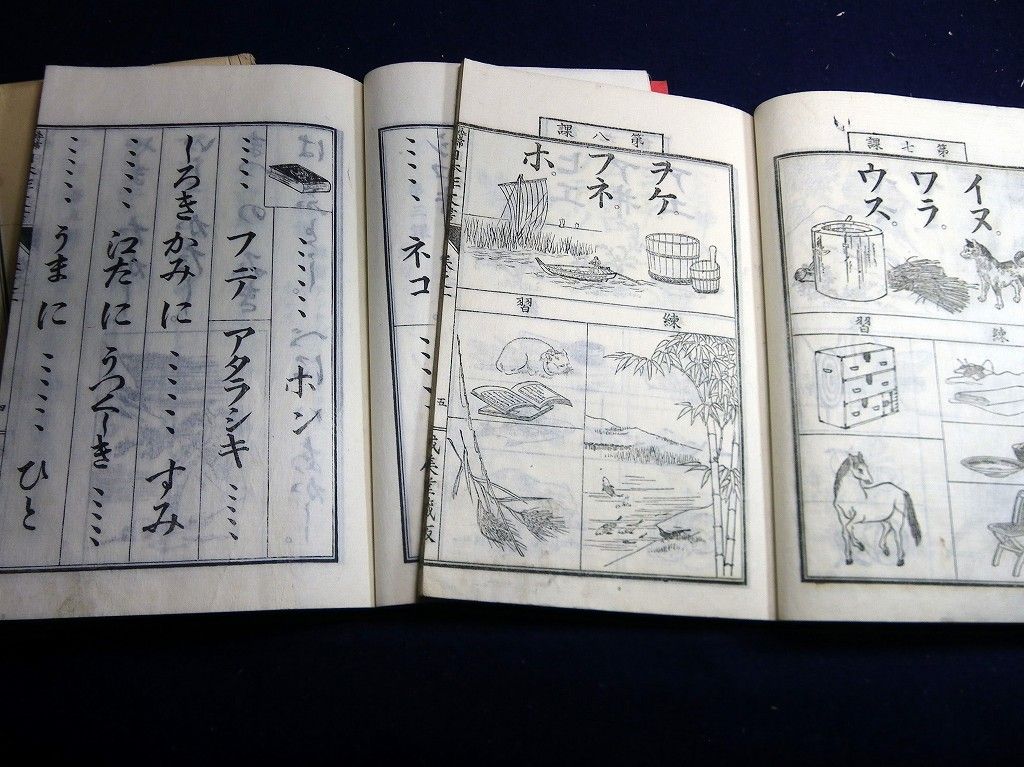 第七課
イヌ。
ワラ。
ウス。
練習
第八課
ヲケ。
フネ。
ホ。
練習
五
ネコ
ホン
フデ アタラシキ
しろき かみに すみ
江だに うつくしき
うまに ひと